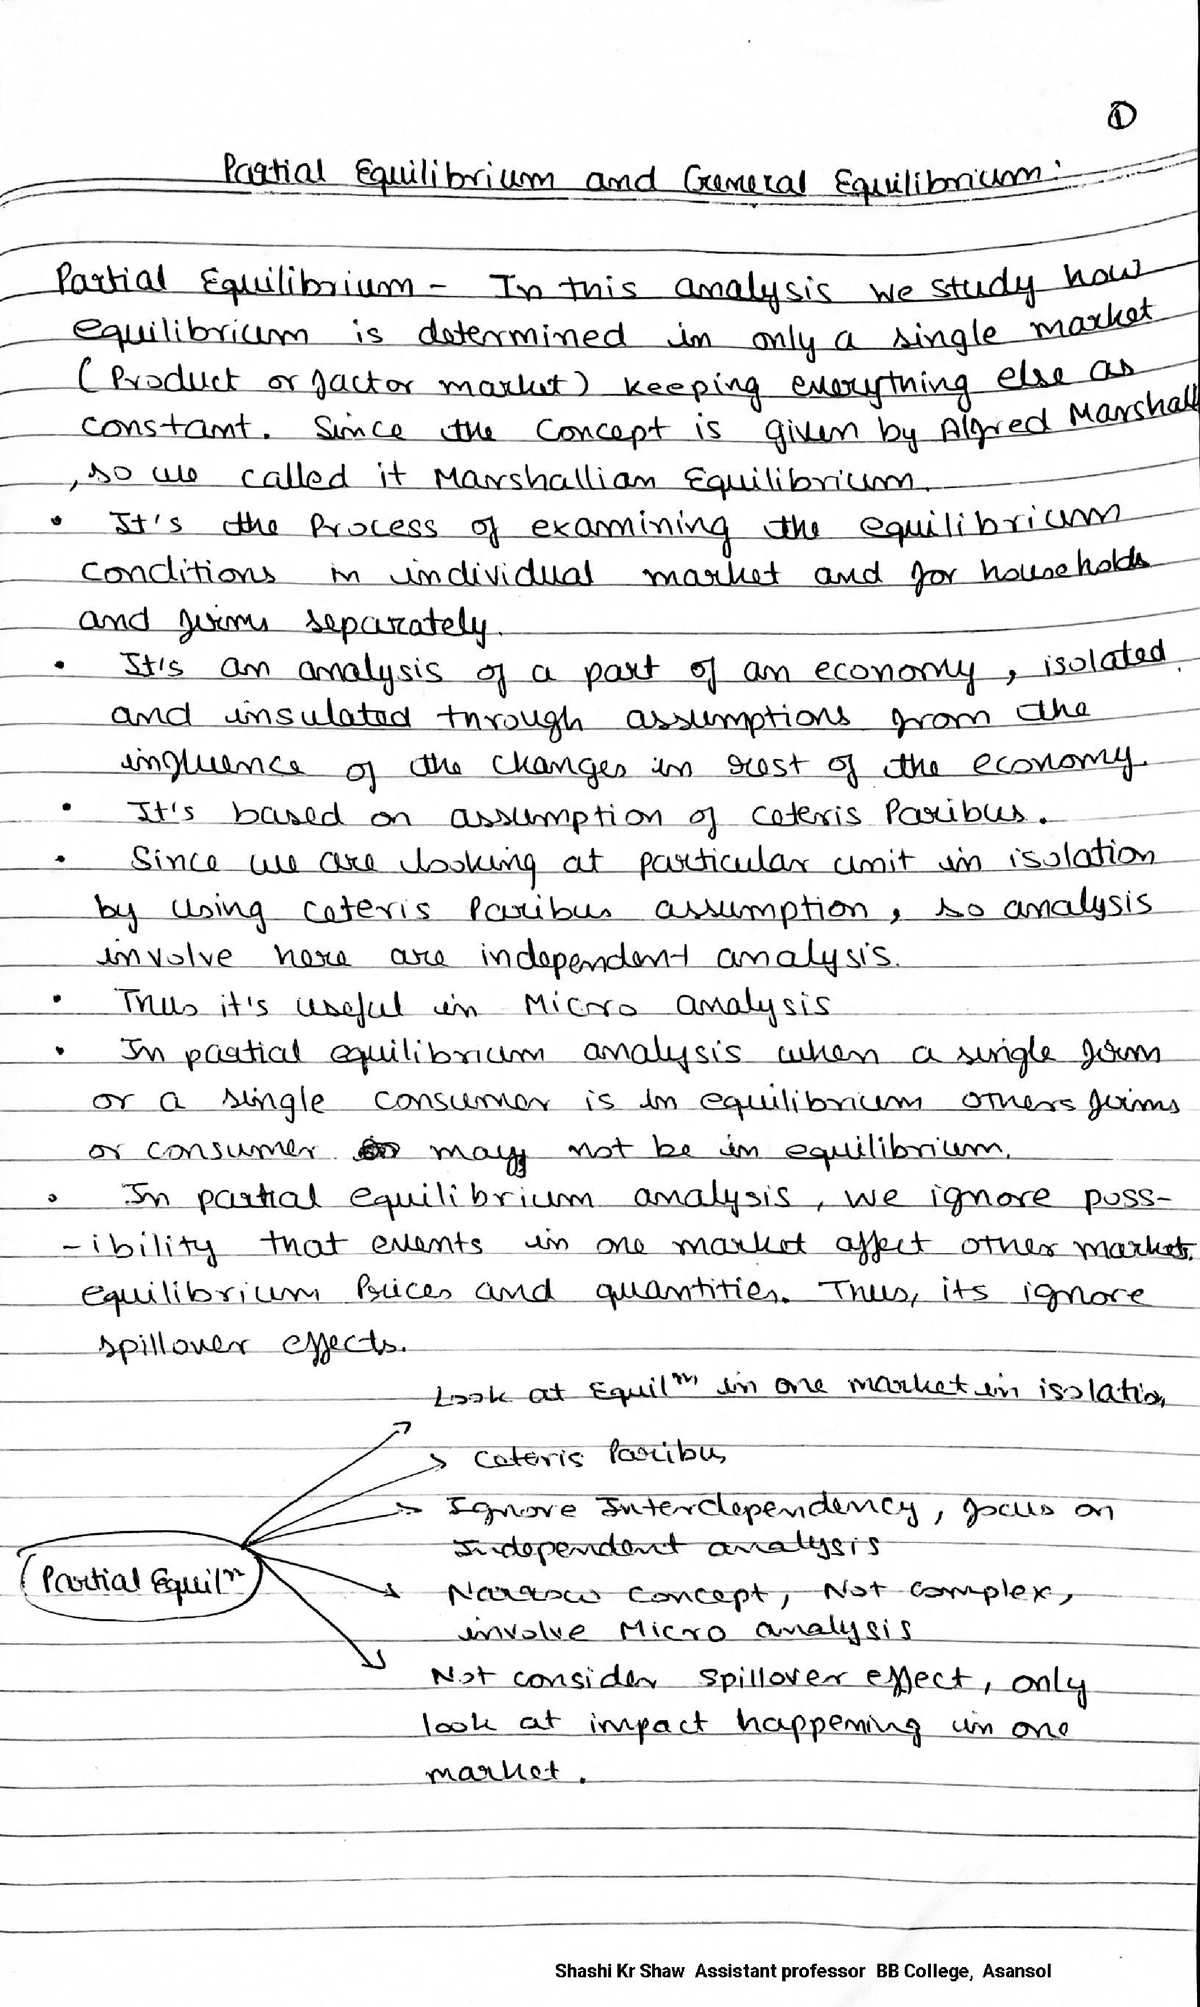 1
Partial Equilibrium and General Equilibrium:
Partial Equilibrium - In this analysis we study how
equilibrium is determined in only a single market
(Product or factor market) keeping everything else as
constant. Since the concept is given by Alfred Marshall
, so we called it Marshallian Equilibrium.
• It's the Process of examining the equilibrium
conditions in individual market and for households
and firms separately.
• It's an analysis of a part of an economy, isolated
and insulated through assumptions from the
influence of the changes in rest of the economy.
• It's based on assumption of ceteris Paribus.
• Since we are looking at particular unit in isolation
by using ceteris Paribus assumption, so analysis
involve here are independent analysis.
• Thus it's useful in Micro analysis
• In partial equilibrium analysis when a single firm
or a single consumer is in equilibrium others firms
or consumer may not be in equilibrium.
• In partial equilibrium analysis, we ignore poss-
-ibility that events in one market affect other markets.
equilibrium Prices and quantities. Thus, its ignore
spillover effects.
Look at Equilm in one market in isolation
Ceteris Paribus
Ignore Interdependency, focus on
Independent analysis
Partial Equiln
Narrow concept, Not complex,
involve Micro analysis
Not consider spillover effect, only
look at impact happening in one
market.
Shashi Kr Shaw Assistant professor BB College, Asansol